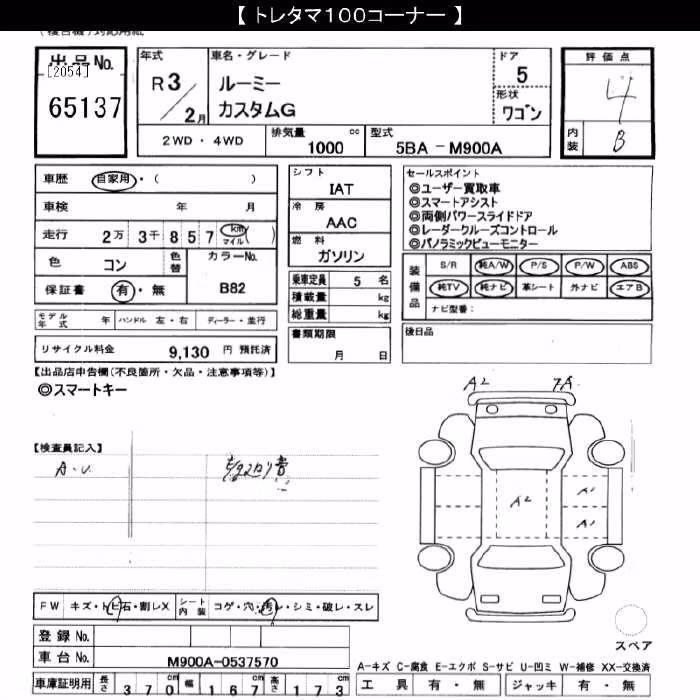 【 トレタマ１００コーナー 】
出品No.
[2054]
65137
年式
R 3 / 2 月
車名・グレード
ルーミー
カスタムG
ドア
5
形状
ワゴン
2WD ・ 4WD
排気量
1000 cc
型式
5BA － M900A
評価点
4
内装
B
車歴 自家用 ・ ( )
車検 年 月
走行 2万 3千 8 5 7 km マイル ( )
色 コン 色替
カラーNo.
B82
保証書 有 ・ 無
モデル年式 年 ハンドル 左 ・ 右 ディーラー ・ 並行
リサイクル料金 9,130 円 預託済
シフト
IAT
冷房
AAC
燃料
ガソリン
乗車定員 5 名
積載量 kg
総重量 kg
書類期限
月 日
セールスポイント
◎ユーザー買取車
◎スマートアシスト
◎両側パワースライドドア
◎レーダークルーズコントロール
◎パノラミックビューモニター
装備品
S/R 純A/W P/S P/W ABS
純TV 純ナビ 革シート 外ナビ エアB
ナビ型番：
後日品
【出品店申告欄(不良箇所・欠品・注意事項等)】
◎スマートキー
【検査員記入】
A・U
A2
7A
A2
A1
A1
FW キズ・トビ石・割レX シート内装 コゲ・穴・汚レ・シミ・破レ・スレ
登録 No.
車台 No. M900A-0537570
車庫証明用 長さ 3 7 0 cm 幅 1 6 7 cm 高さ 1 7 3 cm
スペア
A-キズ C-腐食 E-エクボ S-サビ U-凹ミ W-補修 XX-交換済
工具 有 ・ 無 ジャッキ 有 ・ 無